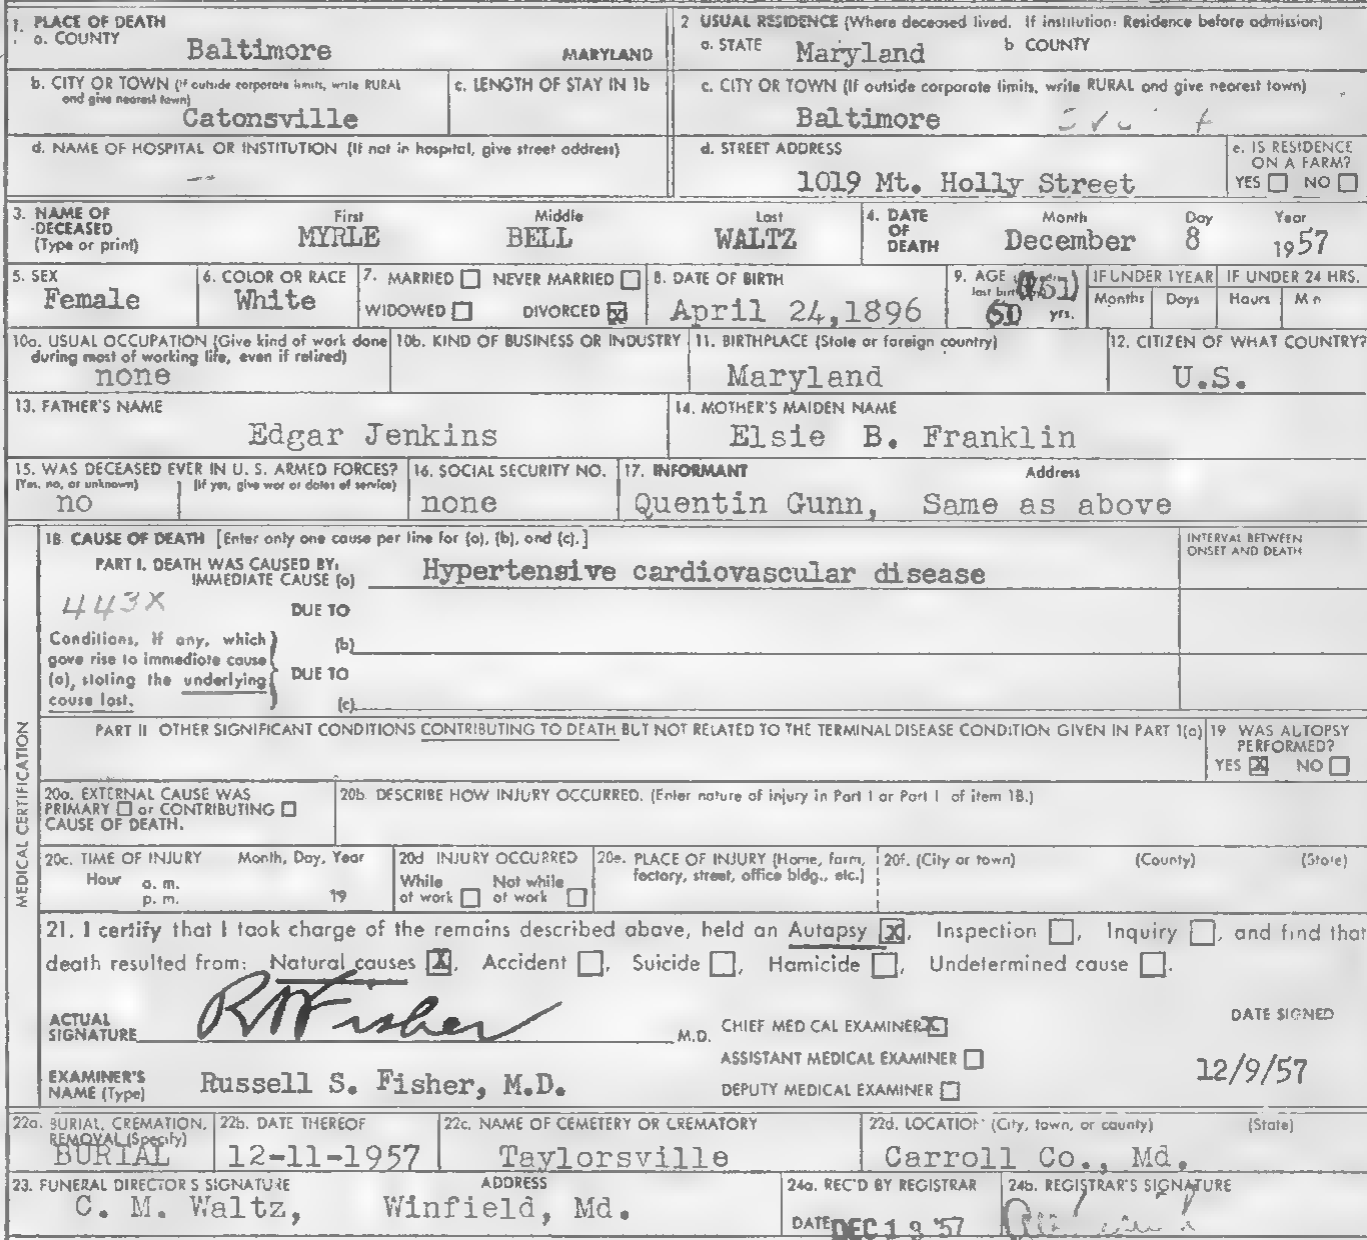 1. PLACE OF DEATH
a. COUNTY
Baltimore
MARYLAND
2 USUAL RESIDENCE (Where deceased lived. If institution: Residence before admission)
a. STATE Maryland b COUNTY
b. CITY OR TOWN (If outside corporate limits, write RURAL and give nearest town)
Catonsville
c. LENGTH OF STAY IN 1b
c. CITY OR TOWN (If outside corporate limits, write RURAL and give nearest town)
Baltimore
d. NAME OF HOSPITAL OR INSTITUTION (If not in hospital, give street address)
d. STREET ADDRESS
1019 Mt. Holly Street
e. IS RESIDENCE ON A FARM?
YES NO
3. NAME OF DECEASED (Type or print)
First Middle Last
MYRLE BELL WALTZ
4. DATE OF DEATH
Month Day Year
December 8 1957
5. SEX
Female
6. COLOR OR RACE
White
7. MARRIED NEVER MARRIED
WIDOWED DIVORCED X
8. DATE OF BIRTH
April 24,1896
9. AGE
last birthday
(61)
yrs.
IF UNDER 1 YEAR
Months Days
IF UNDER 24 HRS.
Hours Min
10a. USUAL OCCUPATION (Give kind of work done during most of working life, even if retired)
none
10b. KIND OF BUSINESS OR INDUSTRY
11. BIRTHPLACE (State or foreign country)
Maryland
12. CITIZEN OF WHAT COUNTRY?
U.S.
13. FATHER'S NAME
Edgar Jenkins
14. MOTHER'S MAIDEN NAME
Elsie B. Franklin
15. WAS DECEASED EVER IN U. S. ARMED FORCES?
(Yes, no, or unknown) (If yes, give war or dates of service)
no
16. SOCIAL SECURITY NO.
none
17. INFORMANT Address
Quentin Gunn, Same as above
MEDICAL CERTIFICATION
18 CAUSE OF DEATH [Enter only one cause per line for (a), (b), and (c).]
INTERVAL BETWEEN ONSET AND DEATH
PART I. DEATH WAS CAUSED BY:
IMMEDIATE CAUSE (a) Hypertensive cardiovascular disease
443X
DUE TO
Conditions, if any, which gave rise to immediate cause (a), stating the underlying cause last.
(b)
DUE TO
(c)
PART II OTHER SIGNIFICANT CONDITIONS CONTRIBUTING TO DEATH BUT NOT RELATED TO THE TERMINAL DISEASE CONDITION GIVEN IN PART 1(a)
19 WAS AUTOPSY PERFORMED?
YES X NO
20a. EXTERNAL CAUSE WAS
PRIMARY or CONTRIBUTING
CAUSE OF DEATH.
20b. DESCRIBE HOW INJURY OCCURRED. (Enter nature of injury in Part I or Part I of item 18.)
20c. TIME OF INJURY Month, Day, Year
Hour a. m.
p. m. 19
20d INJURY OCCURRED
While at work Not while at work
20e. PLACE OF INJURY (Home, farm, factory, street, office bldg., etc.)
20f. (City or town) (County) (State)
21. I certify that I took charge of the remains described above, held an Autopsy X, Inspection , Inquiry , and find that
death resulted from: Natural causes X, Accident , Suicide , Homicide , Undetermined cause .
ACTUAL SIGNATURE
R S Fisher
M.D.
CHIEF MEDICAL EXAMINER X
DATE SIGNED
ASSISTANT MEDICAL EXAMINER
12/9/57
EXAMINER'S NAME (Type)
Russell S. Fisher, M.D.
DEPUTY MEDICAL EXAMINER
22a. BURIAL, CREMATION, REMOVAL (Specify)
BURIAL
22b. DATE THEREOF
12-11-1957
22c. NAME OF CEMETERY OR CREMATORY
Taylorsville
22d. LOCATION (City, town, or county) (State)
Carroll Co., Md.
23. FUNERAL DIRECTOR'S SIGNATURE ADDRESS
C. M. Waltz, Winfield, Md.
24a. REC'D BY REGISTRAR
DATE DEC 19 '57
24b. REGISTRAR'S SIGNATURE